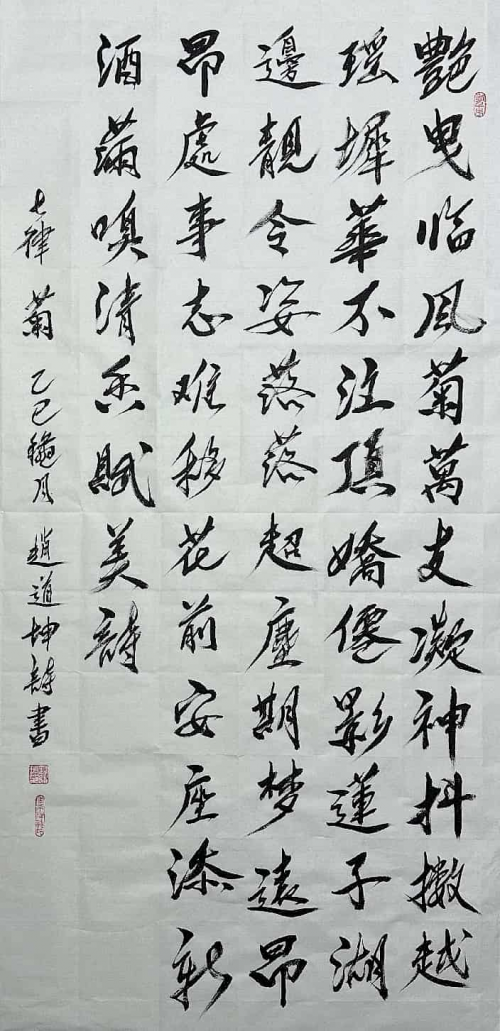 艷曳临风菊萬支凝神抖擞越
瑶墀華不注頂嬌僊影蓮子湖
邊靚令姿落落超塵期梦遠昂
昂處事志难移花前安座添新
酒嗅清香賦美詩
七律 菊 乙巳穐月 趙道坤詩書